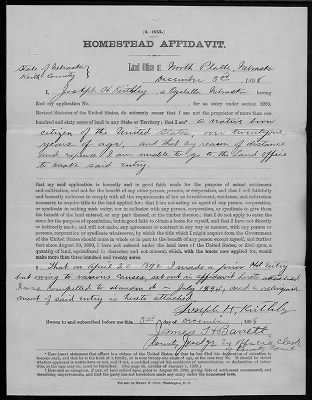 (4—063.)
HOMESTEAD AFFIDAVIT.
State of Nebraska
Keith County
Land Office at North Platte, Nebraska
December 3rd 1898
I, Joseph H. Keithley, of Ogalalla Nebraska having
filed my application No. , for an entry under section 2289,
Revised Statutes of the United States, do solemnly swear that I am not the proprietor of more than one
hundred and sixty acres of land in any State or Territory; that I am a native born
citizen of the United States, over twenty one
years of age, and that by reason of distance
and expense I am unable to go to the land office
to make said entry.
that my said application is honestly and in good faith made for the purpose of actual settlement
and cultivation, and not for the benefit of any other person, persons, or corporation, and that I will faithfully
and honestly endeavor to comply with all the requirements of law as to settlement, residence, and cultivation
necessary to acquire title to the land applied for; that I am not acting as agent of any person, corporation,
or syndicate in making such entry, nor in collusion with any person, corporation, or syndicate to give them
the benefit of the land entered, or any part thereof, or the timber thereon; that I do not apply to enter the
same for the purpose of speculation, but in good faith to obtain a home for myself, and that I have not directly
or indirectly made, and will not make, any agreement or contract in any way or manner, with any person or
persons, corporation or syndicate whatsoever, by which the title which I might acquire from the Government
of the United States should inure in whole or in part to the benefit of any person except myself, and further
that since August 30, 1890, I have not entered under the land laws of the United States, or filed upon, a
quantity of land, agricultural in character, and not mineral, which, with the tracts now applied for, would
make more than three hundred and twenty acres.
That on April 20 1892 I made a prior Hd Entry
but owing to various causes, set out in affidavit hereto attached
I was compelled to abandon it in July 1894, and a relinquish
ment of said entry is hereto attached
Joseph H. Keithley
Sworn to and subscribed before me this 3rd day of December 1898
James H Barrett
County Judge Ex Officio Clerk
County Court